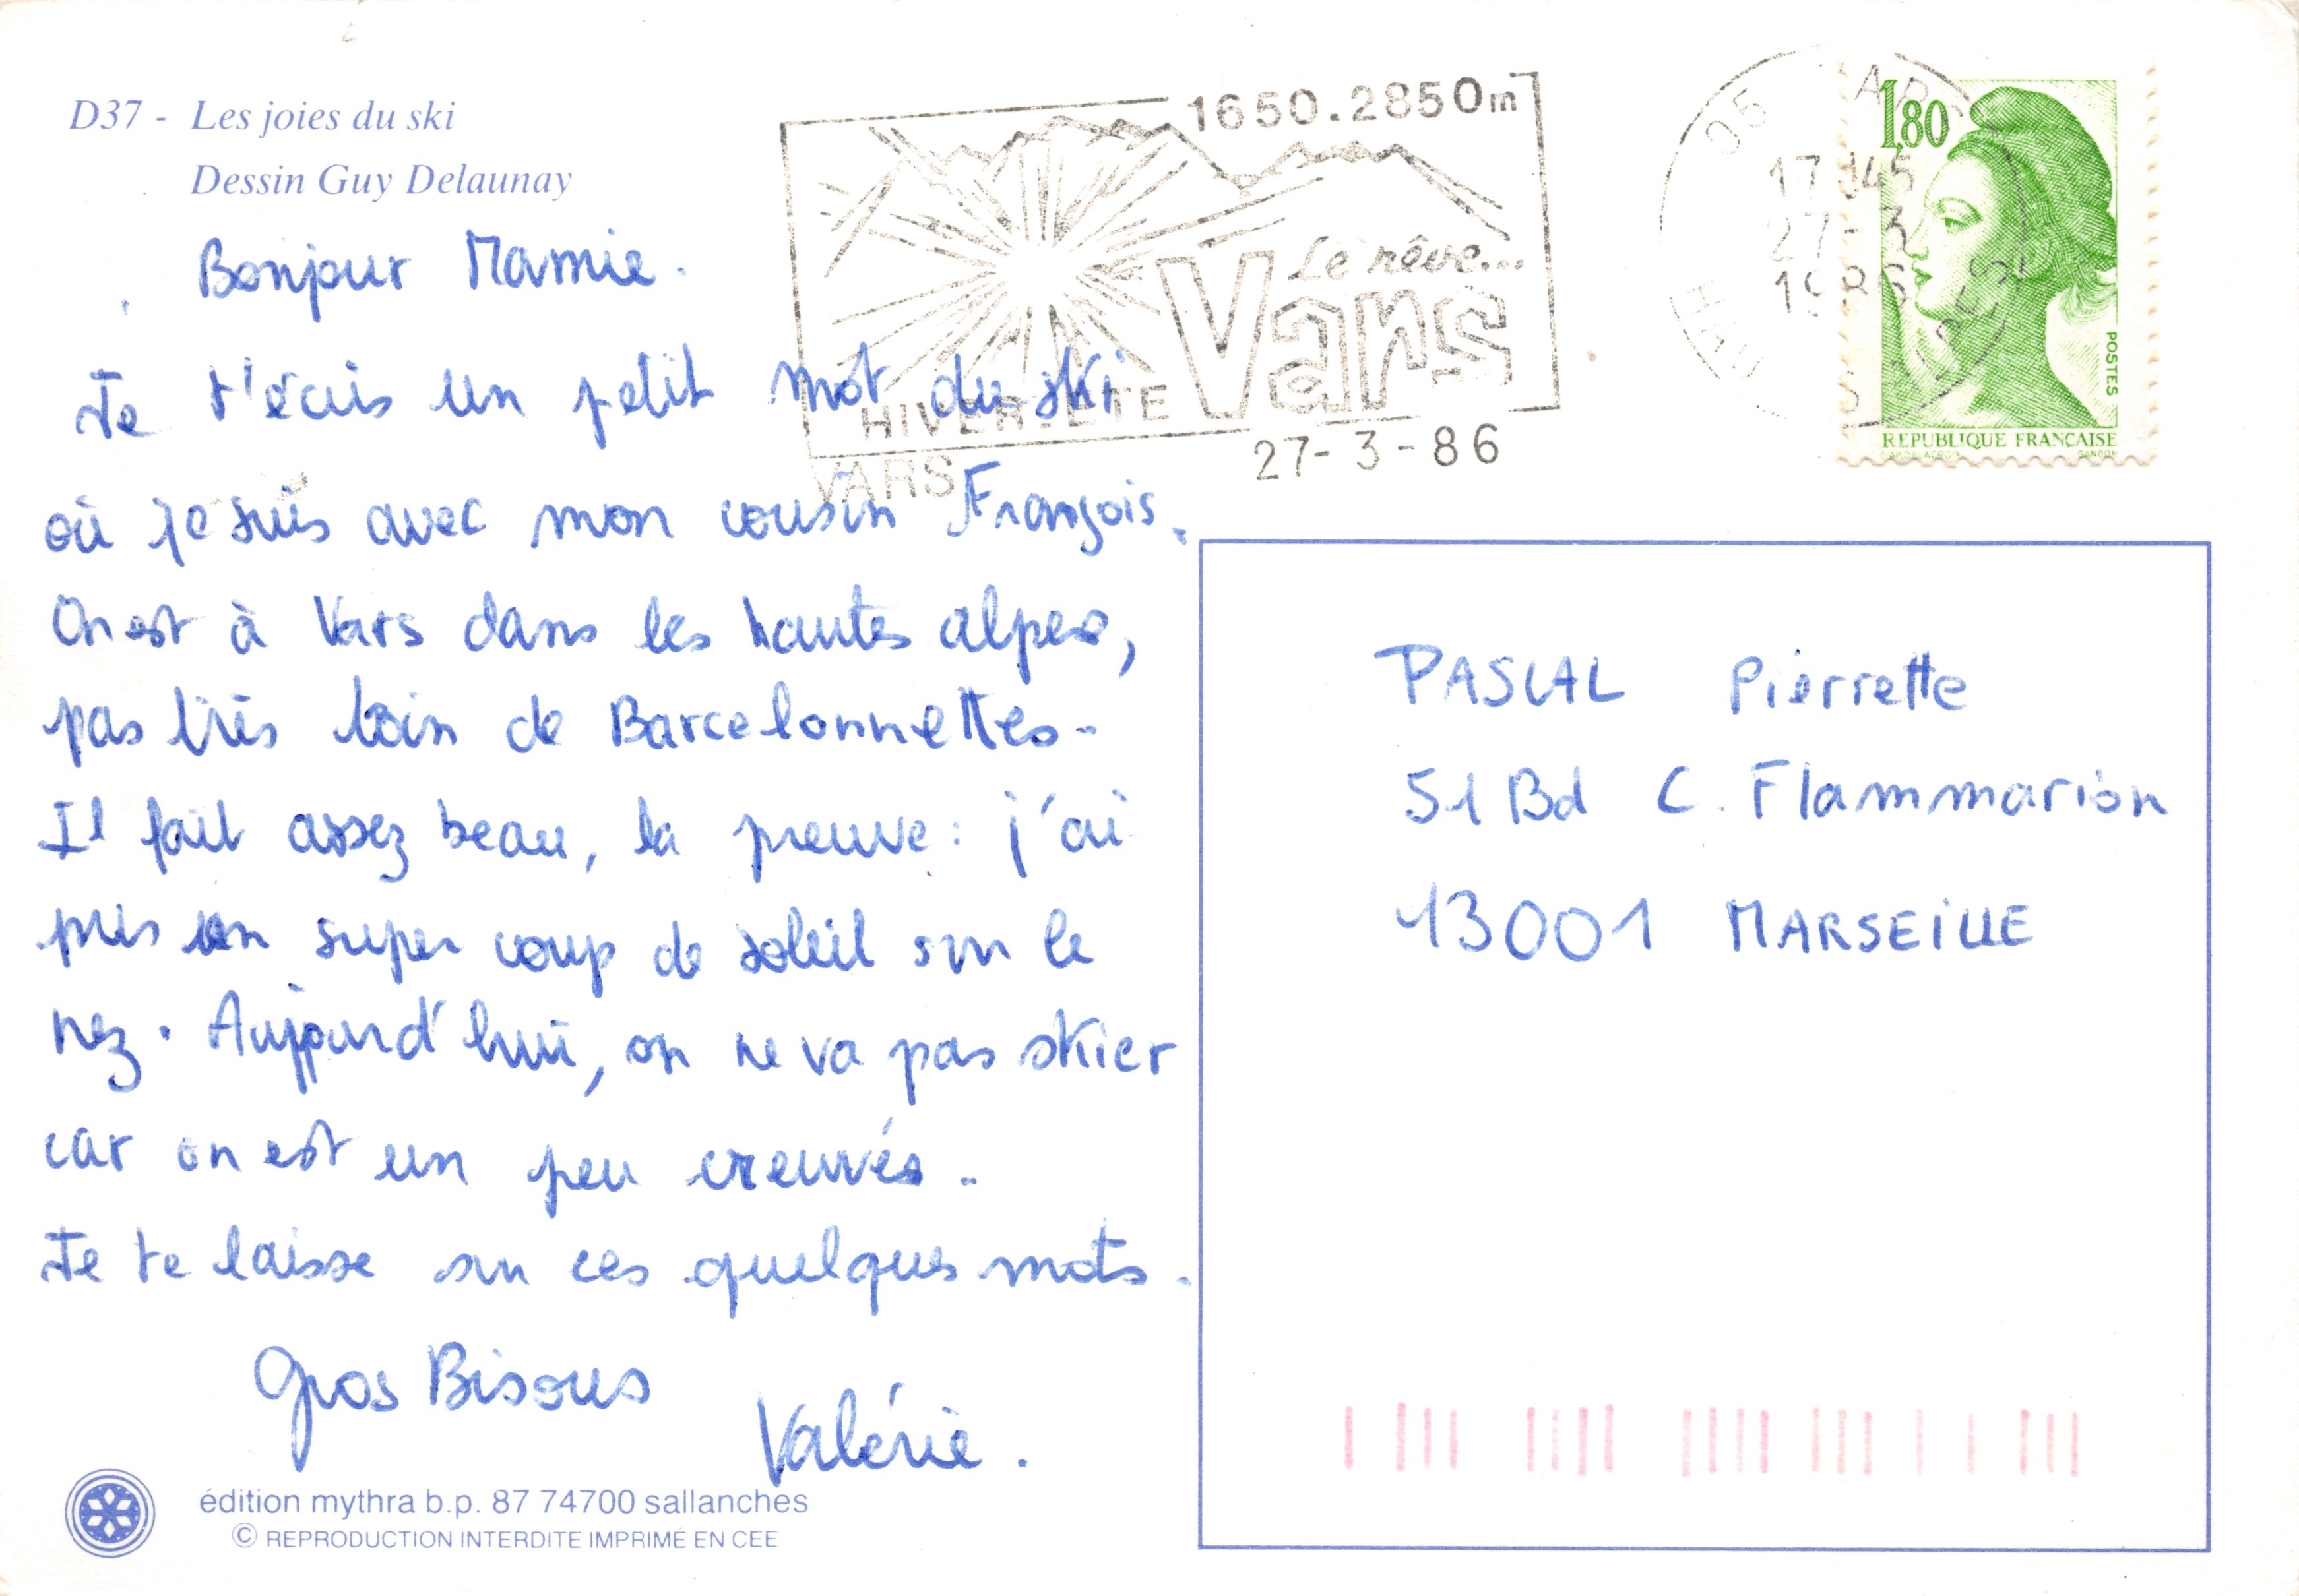 D37 - Les joies du ski
Dessin Guy Delaunay
1650.2850m
Le rêve...
Vars
HIVER.ETE
VARS
27-3-86
05 VARS
17H45
27-3
1986
HAUTES ALPES
1,80
POSTES
REPUBLIQUE FRANÇAISE
GANDON
Bonjour Mamie.
Je t'écris un petit mot du ski
où je suis avec mon cousin François.
On est à Vars dans les hautes alpes,
pas très loin de Barcelonnettes.
Il fait assez beau, la preuve : j'ai
pris un super coup de soleil sur le
nez. Aujourd'hui, on ne va pas skier
car on est un peu creuvés.
Je te laisse sur ces quelques mots.
Gros Bisous
Valérie.
PASCAL Pierrette
51 Bd C. Flammarion
13001 MARSEILLE
édition mythra b.p. 87 74700 sallanches
© REPRODUCTION INTERDITE IMPRIMÉ EN CEE